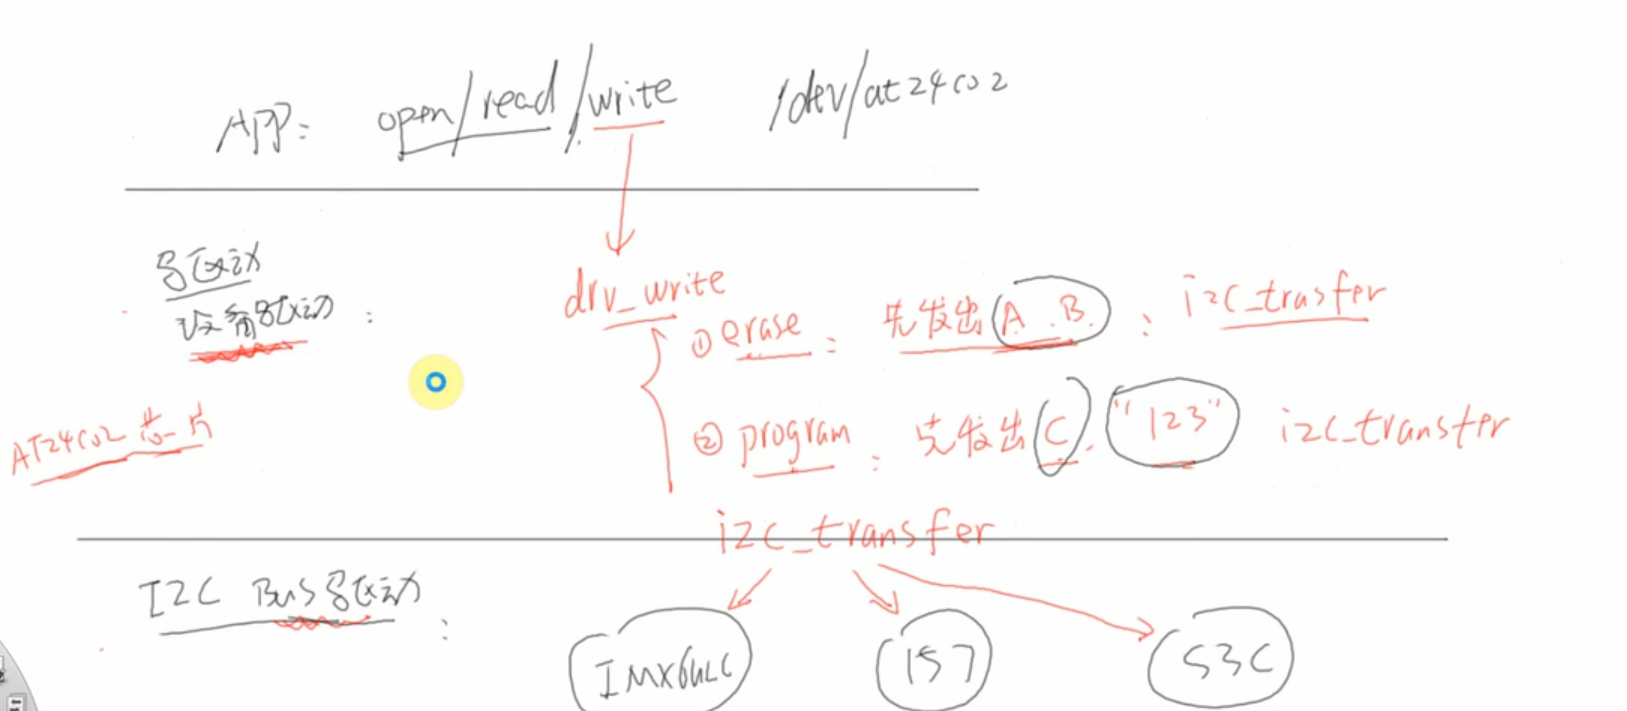 APP: open/read/write /dev/at24c02
驱动
设备驱动:
drv_write
① erase: 先发出 A. B. : i2c_trasfer
② program: 先发出 C. "123" i2c_transfer
AT24C02 芯片
i2c_transfer
I2C Bus驱动:
IMX6ULL 157 S3C